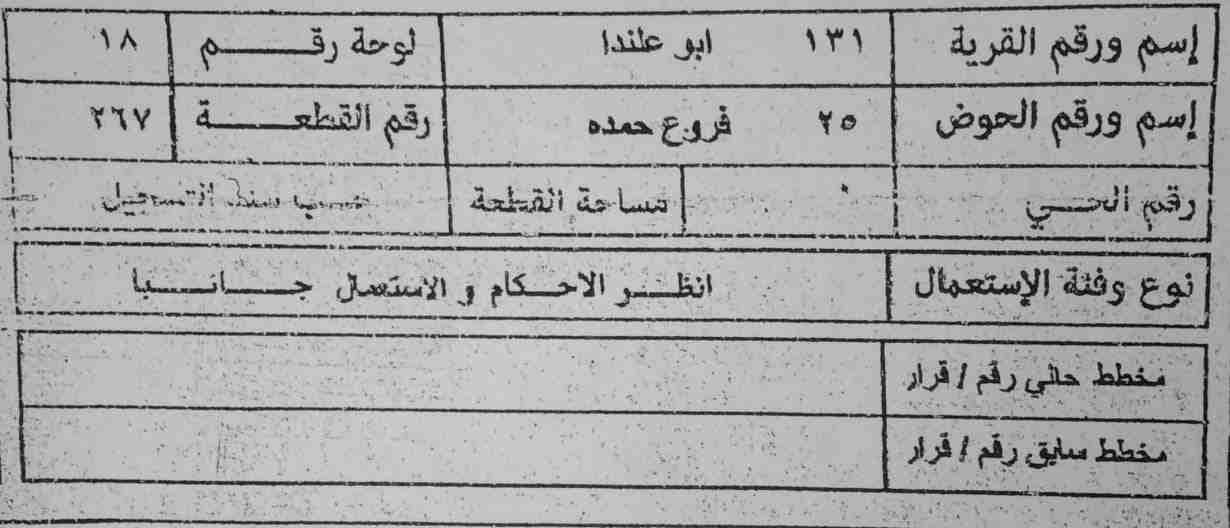 إسم ورقم القرية ١٣١ ابو علندا لوحة رقم ١٨
إسم ورقم الحوض ٢٥ فروع حمده رقم القطعة ٢٦٧
رقم الحي ٠ مساحة القطعة حسب سند التسجيل
نوع وفئة الإستعمال انظر الاحكام و الاستعمال جانبا
مخطط حالي رقم / قرار
مخطط سابق رقم / قرار